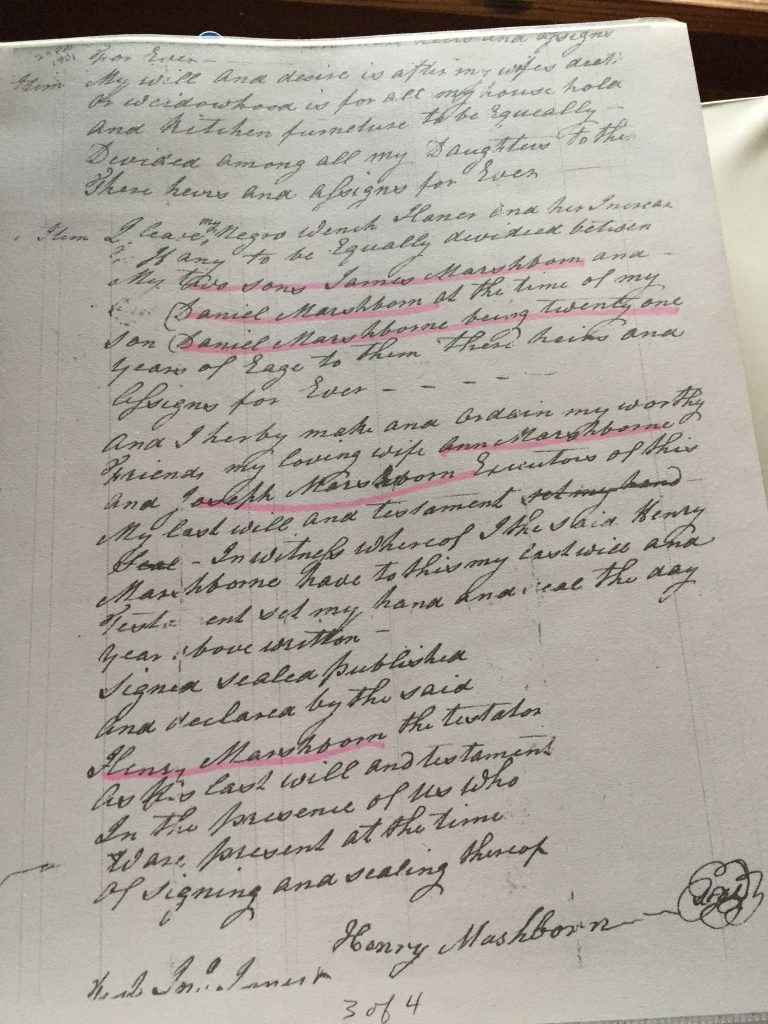 heirs and assigns
For Ever —
Item My will and desire is after my wifes deat
Or weidowhood is for all my house hold
And Kitchen furneture to be Equeally —
Devided among all my Daughters to the
There heirs and assigns for Ever —
Item I leave my Negro Wench and her Increas
If any to be Equally devided between
My two sons James Marshborn and —
Daniel Marshborn at the time of my
Son Daniel Marshborne being twenty one
years of Eage to them there heirs and
Assigns for Ever — - - - -
And I herby make and ordain my worthy
Friends my loving wife Ann Marshborne
And Joseph Marshborn Executors of this
My last will and testament set my hand
Seal - In witness whereof I the said Henry
Marshborne have to this my last will and
Test= ent set my hand and seal the day
year above written —
Signed sealed published
And declared by the said
Henry Marshborn the testator
As his last will and testament
In the presence of us who
Ware present at the time
Of signing and sealing thereof
Henry Mashborn — Seal
3 of 4